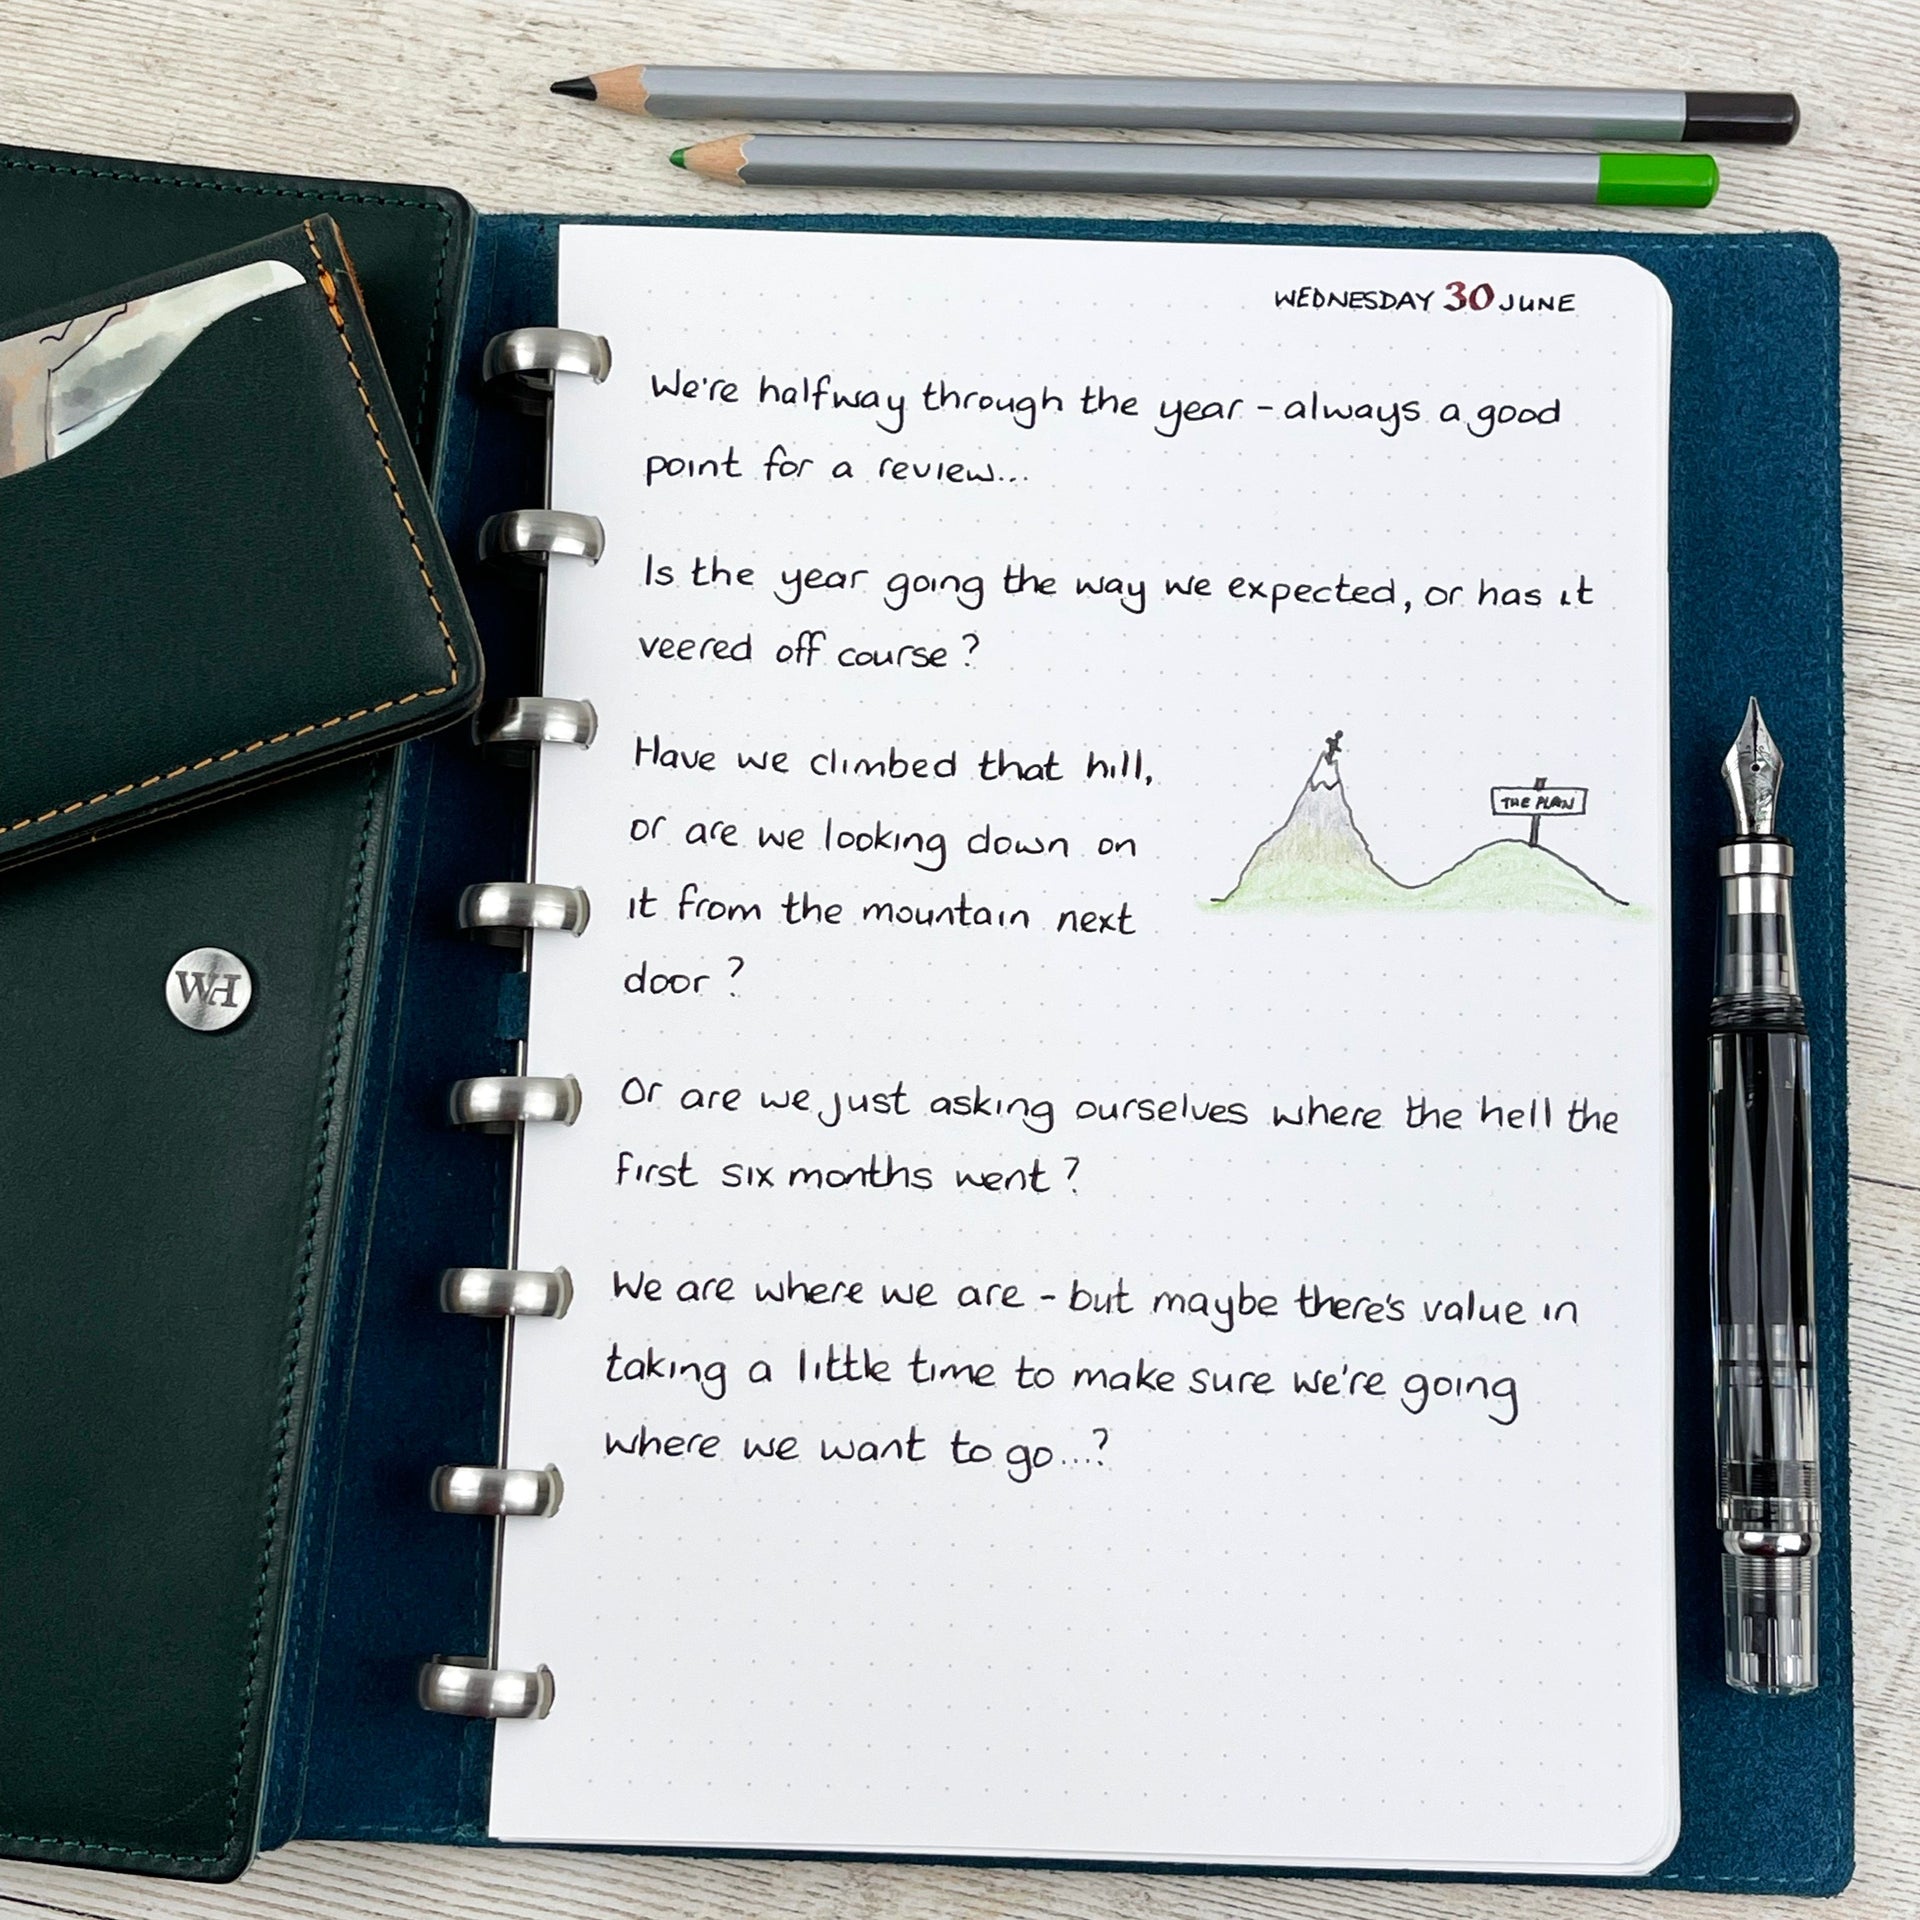 WEDNESDAY 30 JUNE
We're halfway through the year - always a good
point for a review...
Is the year going the way we expected, or has it
veered off course?
Have we climbed that hill,
or are we looking down on
it from the mountain next
door?
THE PLAN
Or are we just asking ourselves where the hell the
first six months went?
We are where we are - but maybe there's value in
taking a little time to make sure we're going
where we want to go...?
WH